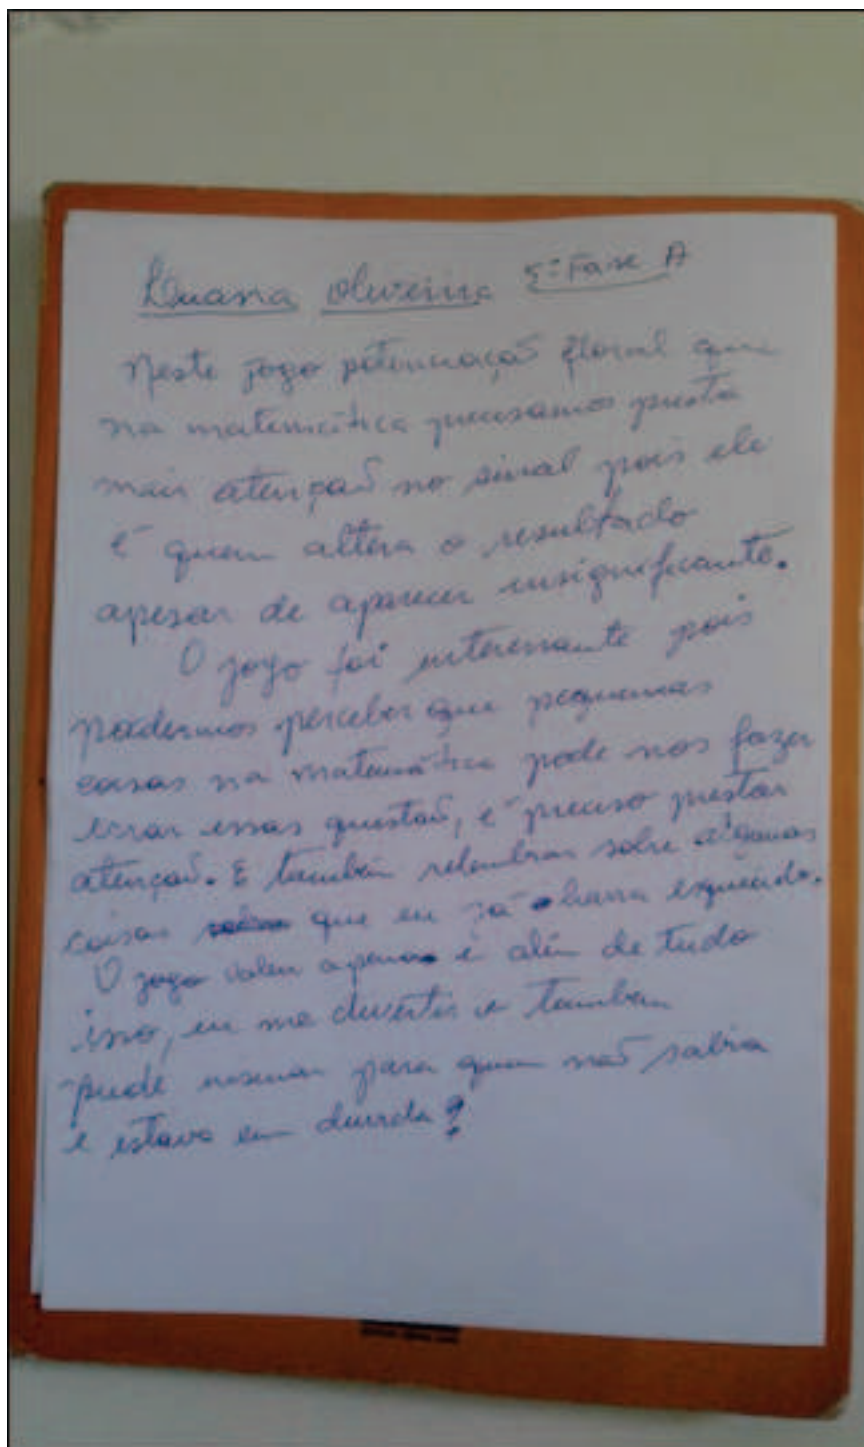 Luana Oliveira 5ª Fase A
Neste jogo potenciação floral que
na matemática precisamos presta
mais atenção no sinal pois ele
é quem altera o resultado
apesar de aparecer insignificante.
O jogo foi interessante pois
podermos perceber que pequenas
coisas na matemática pode nos fazer
errar essas questão, é preciso prestar
atenção. E também relembrar sobre algumas
coisas que eu já havia esquecido.
O jogo valeu apena e além de tudo
isso, eu me divertir e também
pude ensinar para quem não sabia
e estava em duvida